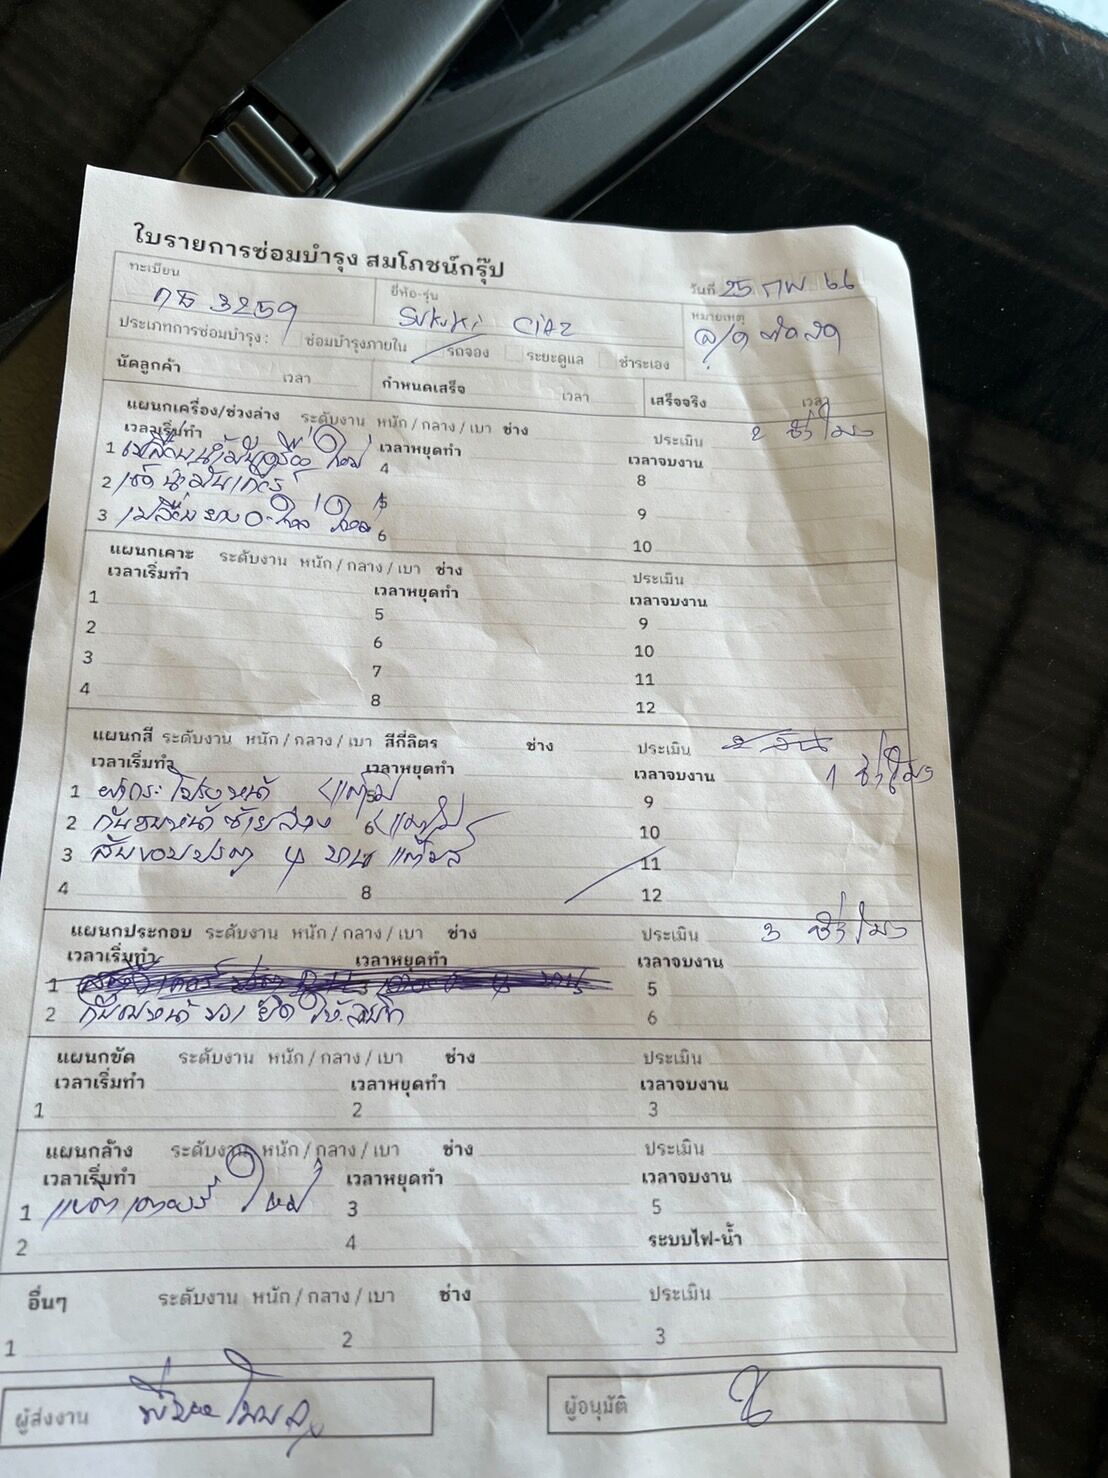 ใบรายการซ่อมบำรุง สมโภชน์กรุ๊ป
ทะเบียน 3259 ยี่ห้อ-รุ่น Sukuki CiAz วันที่ 25 กพ 66
หมายเหตุ
ประเภทการซ่อมบำรุง : ซ่อมบำรุงภายใน รถจอง ระยะดูแล ชำระเอง
นัดลูกค้า เวลา กำหนดเสร็จ เวลา เสร็จจริง เวลา
แผนกเครื่อง/ช่วงล่าง ระดับงาน หนัก / กลาง / เบา ช่าง ประเมิน 2 ชั่วโมง
เวลาเริ่มทำ เวลาหยุดทำ เวลาจบงาน
1 เปลี่ยนน้ำมันเครื่อง ใหม่ 4 8
2 เช็คน้ำมันเกียร์ 5 9
3 เปลี่ยนยาง ใหม่ 6 10
แผนกเคาะ ระดับงาน หนัก / กลาง / เบา ช่าง ประเมิน
เวลาเริ่มทำ เวลาหยุดทำ เวลาจบงาน
1 5 9
2 6 10
3 7 11
4 8 12
แผนกสี ระดับงาน หนัก / กลาง / เบา สีกี่ลิตร ช่าง ประเมิน 1 ชั่วโมง
เวลาเริ่มทำ เวลาหยุดทำ เวลาจบงาน
1 ฝากระโปรงหน้า แต้ม 5 9
2 กันชนหน้าซ้ายล่าง 6 10
3 ขอบประตู 4 บาน แต้มสี 11
4 8 12
แผนกประกอบ ระดับงาน หนัก / กลาง / เบา ช่าง ประเมิน 3 ชั่วโมง
เวลาเริ่มทำ เวลาหยุดทำ เวลาจบงาน
1 5
2 กันชนหน้า ยึดให้สนิท 6
แผนกขัด ระดับงาน หนัก / กลาง / เบา ช่าง ประเมิน
เวลาเริ่มทำ เวลาหยุดทำ เวลาจบงาน
1 2 3
แผนกล้าง ระดับงาน หนัก / กลาง / เบา ช่าง ประเมิน
เวลาเริ่มทำ เวลาหยุดทำ เวลาจบงาน
1 แบตเตอรี่ ใหม่ 3 5
2 4 ระบบไฟ-น้ำ
อื่นๆ ระดับงาน หนัก / กลาง / เบา ช่าง ประเมิน
1 2 3
ผู้ส่งงาน ผู้อนุมัติ